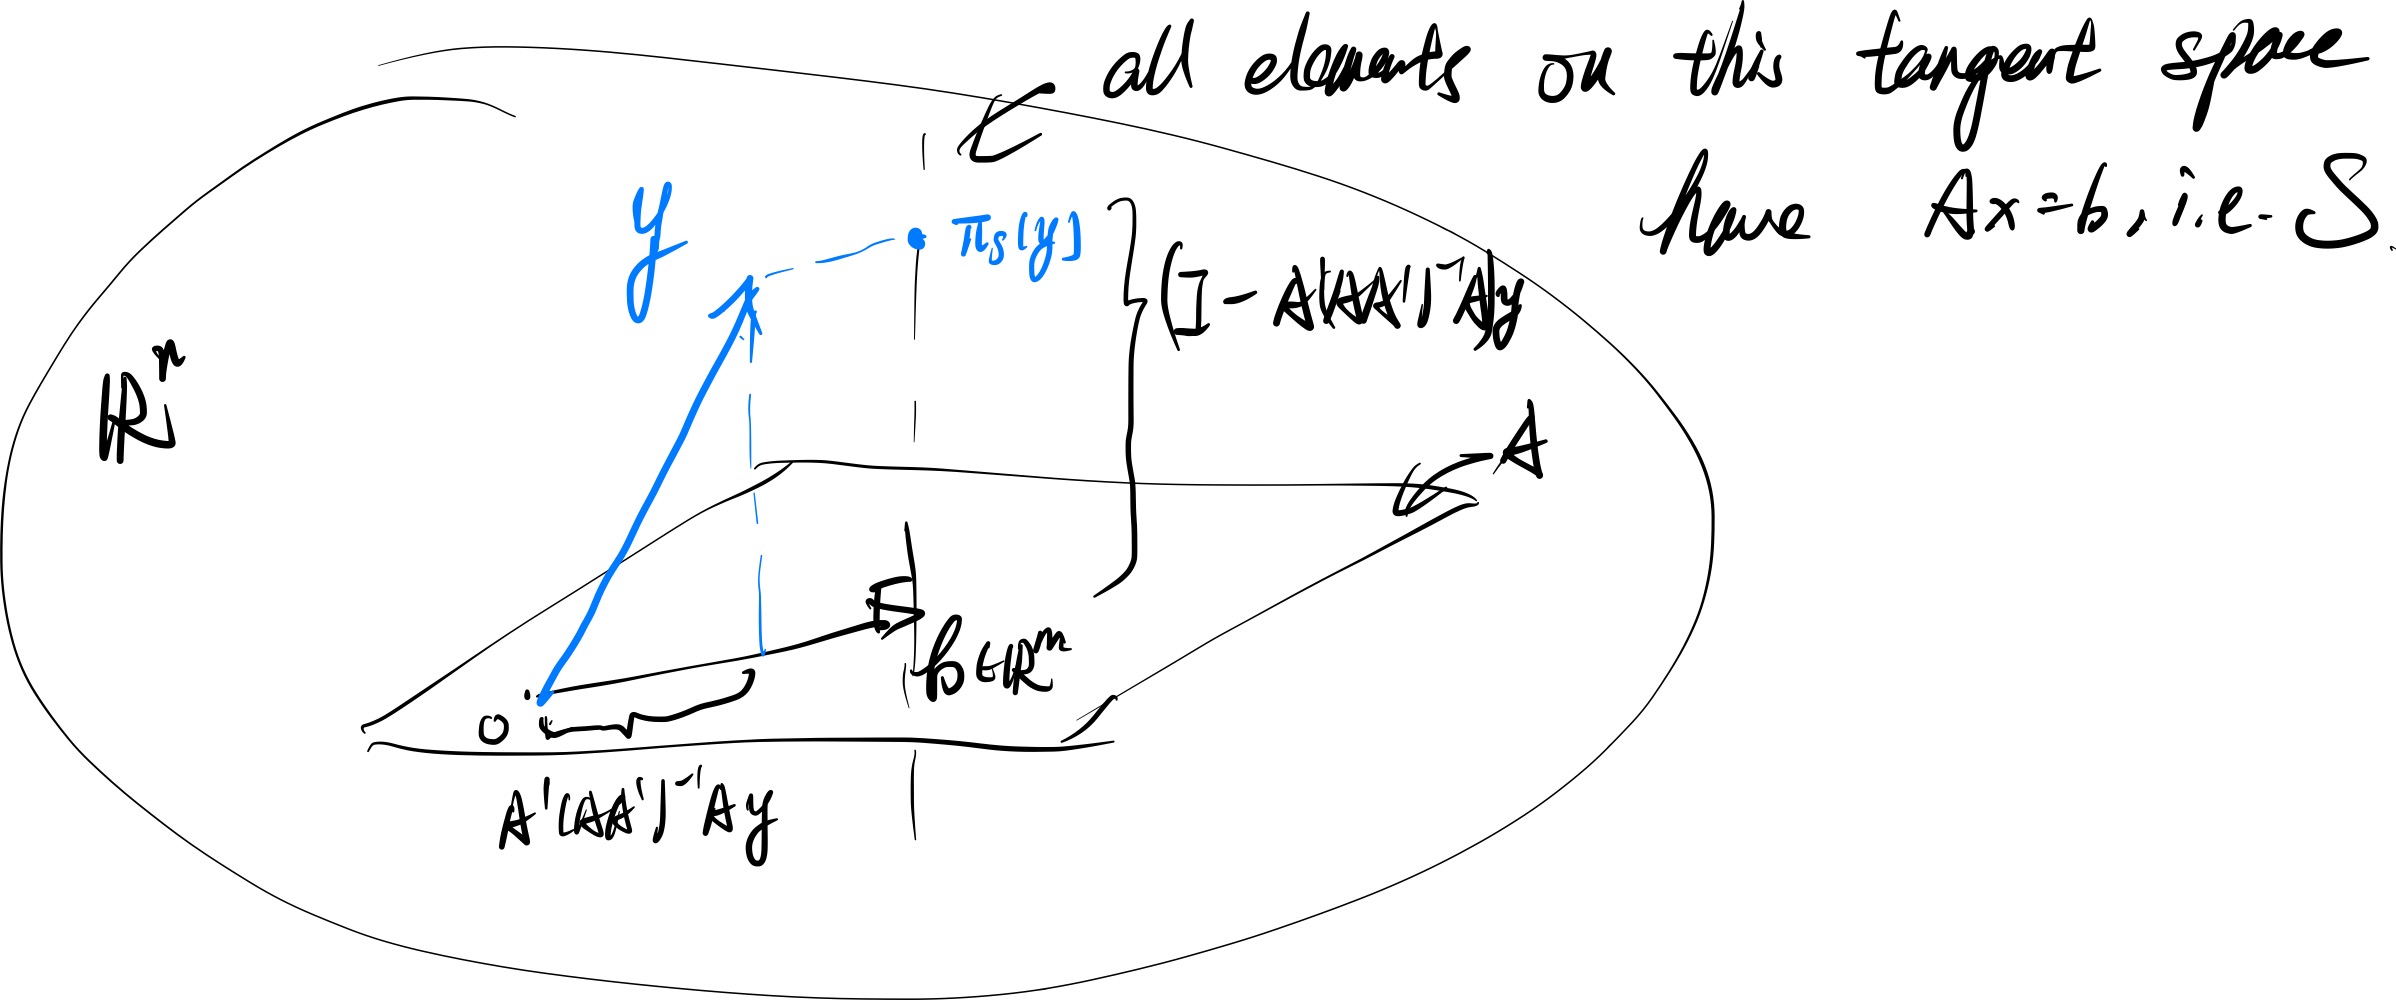 all elements on this tangent space
have Ax=b, i.e. S.
y
πs(y)
(I - A'(AA')⁻¹A)y
ℝⁿ
A
b∈ℝᵐ
0
A'(AA')⁻¹Ay